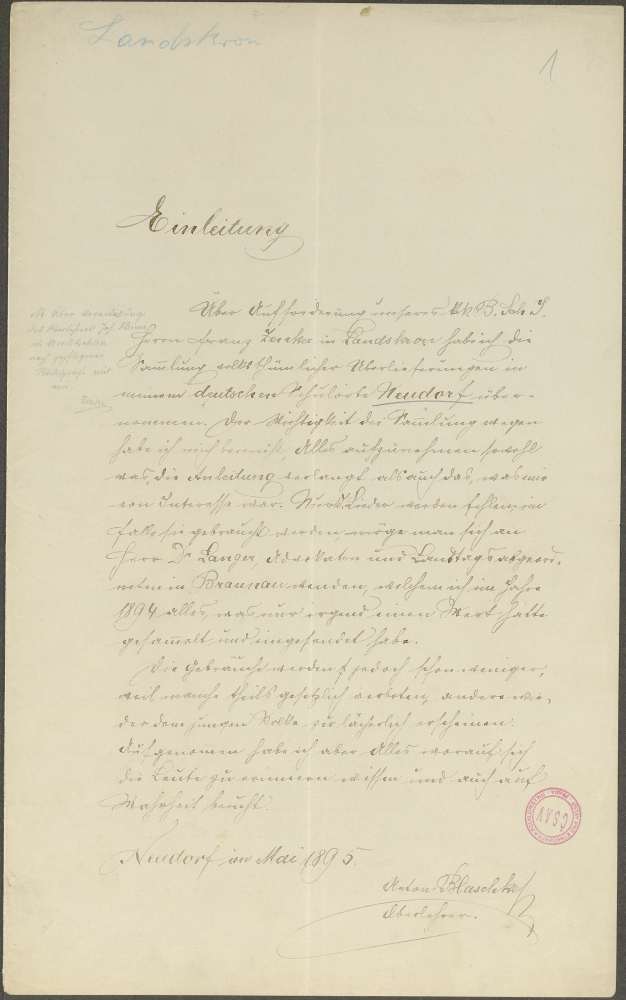 Landskron
1
Einleitung
Über Aufforderung unseres k.k. B. Sch. I.
Herrn Franz in Landskron habe ich die
Sam̅lung volksthümlicher Überlieferungen in
meinem deutschen Schulorte Neudorf über-
nommen. Der Wichtigkeit der Sam̅lung wegen
habe ich mich bemüht, Alles aufzunehmen sowohl
was die Anleitung verlangt als auch das, was mir
von Interesse war. Nur Lieder werden fehlen, im
Falle sie gebraucht werden, möge man sich an
Herr Dr Langer, Advokaten und Landtagsabgeord-
neten in Braunau wenden, welchem ich im Jahre
1894 alles, was nur irgend einen Wert hatte
gesam̅elt und eingesendet habe.
Die Gebräuche werden jedoch schon weniger,
weil manche theils gesetzlich verboten, andere wie-
der dem jungen Volke zu lächerlich erscheinen.
Aufgenom̅en habe ich aber Alles worauf sich
die Leute zu erinnern wissen und auch auf
Wahrheit beruht.
Neudorf im Mai 1895.
Anton Blaschke
Oberlehrer.
ČSAV